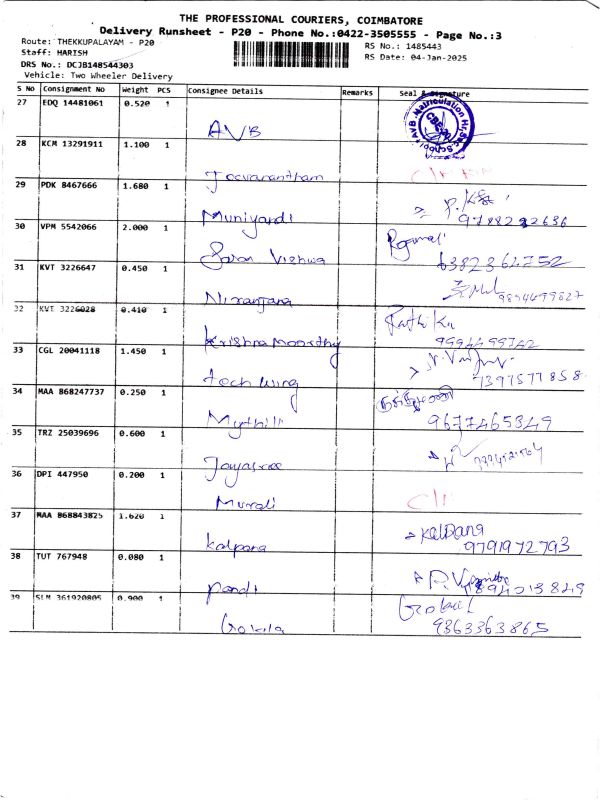 THE PROFESSIONAL COURIERS, COIMBATORE
Delivery Runsheet - P20 - Phone No.:0422-3505555 - Page No.:3
Route: THEKKUPALAYAM - P20
Staff: HARISH
DRS No.: DCJB148544303
Vehicle: Two Wheeler Delivery
RS No.: 1485443
RS Date: 04-Jan-2025
S No Consignment No Weight PCS Consignee Details Remarks Seal & Signature
27 EDQ 14481061 0.520 1 AVB
28 KCM 13291911 1.100 1 Jeevanantham
29 PDK 8467666 1.680 1 Muniyandi
30 VPM 5542066 2.000 1 Saran Vishwa
31 KVT 3226647 0.450 1 Niranjana
32 KVT 3226028 0.410 1 Krishna moorthy Rathika
33 CGL 20041118 1.450 1 tech wing 7397577858
34 MAA 868247737 0.250 1 Mythili 9677465349
35 TRZ 25039696 0.600 1 Jayasree
36 DPI 447950 0.200 1 Murali
37 MAA 868843825 1.620 1 kalpana Kalpana 9791972793
38 TUT 767948 0.080 1 pandi
39 SLM 361920805 0.900 1 Gokila 9363363865